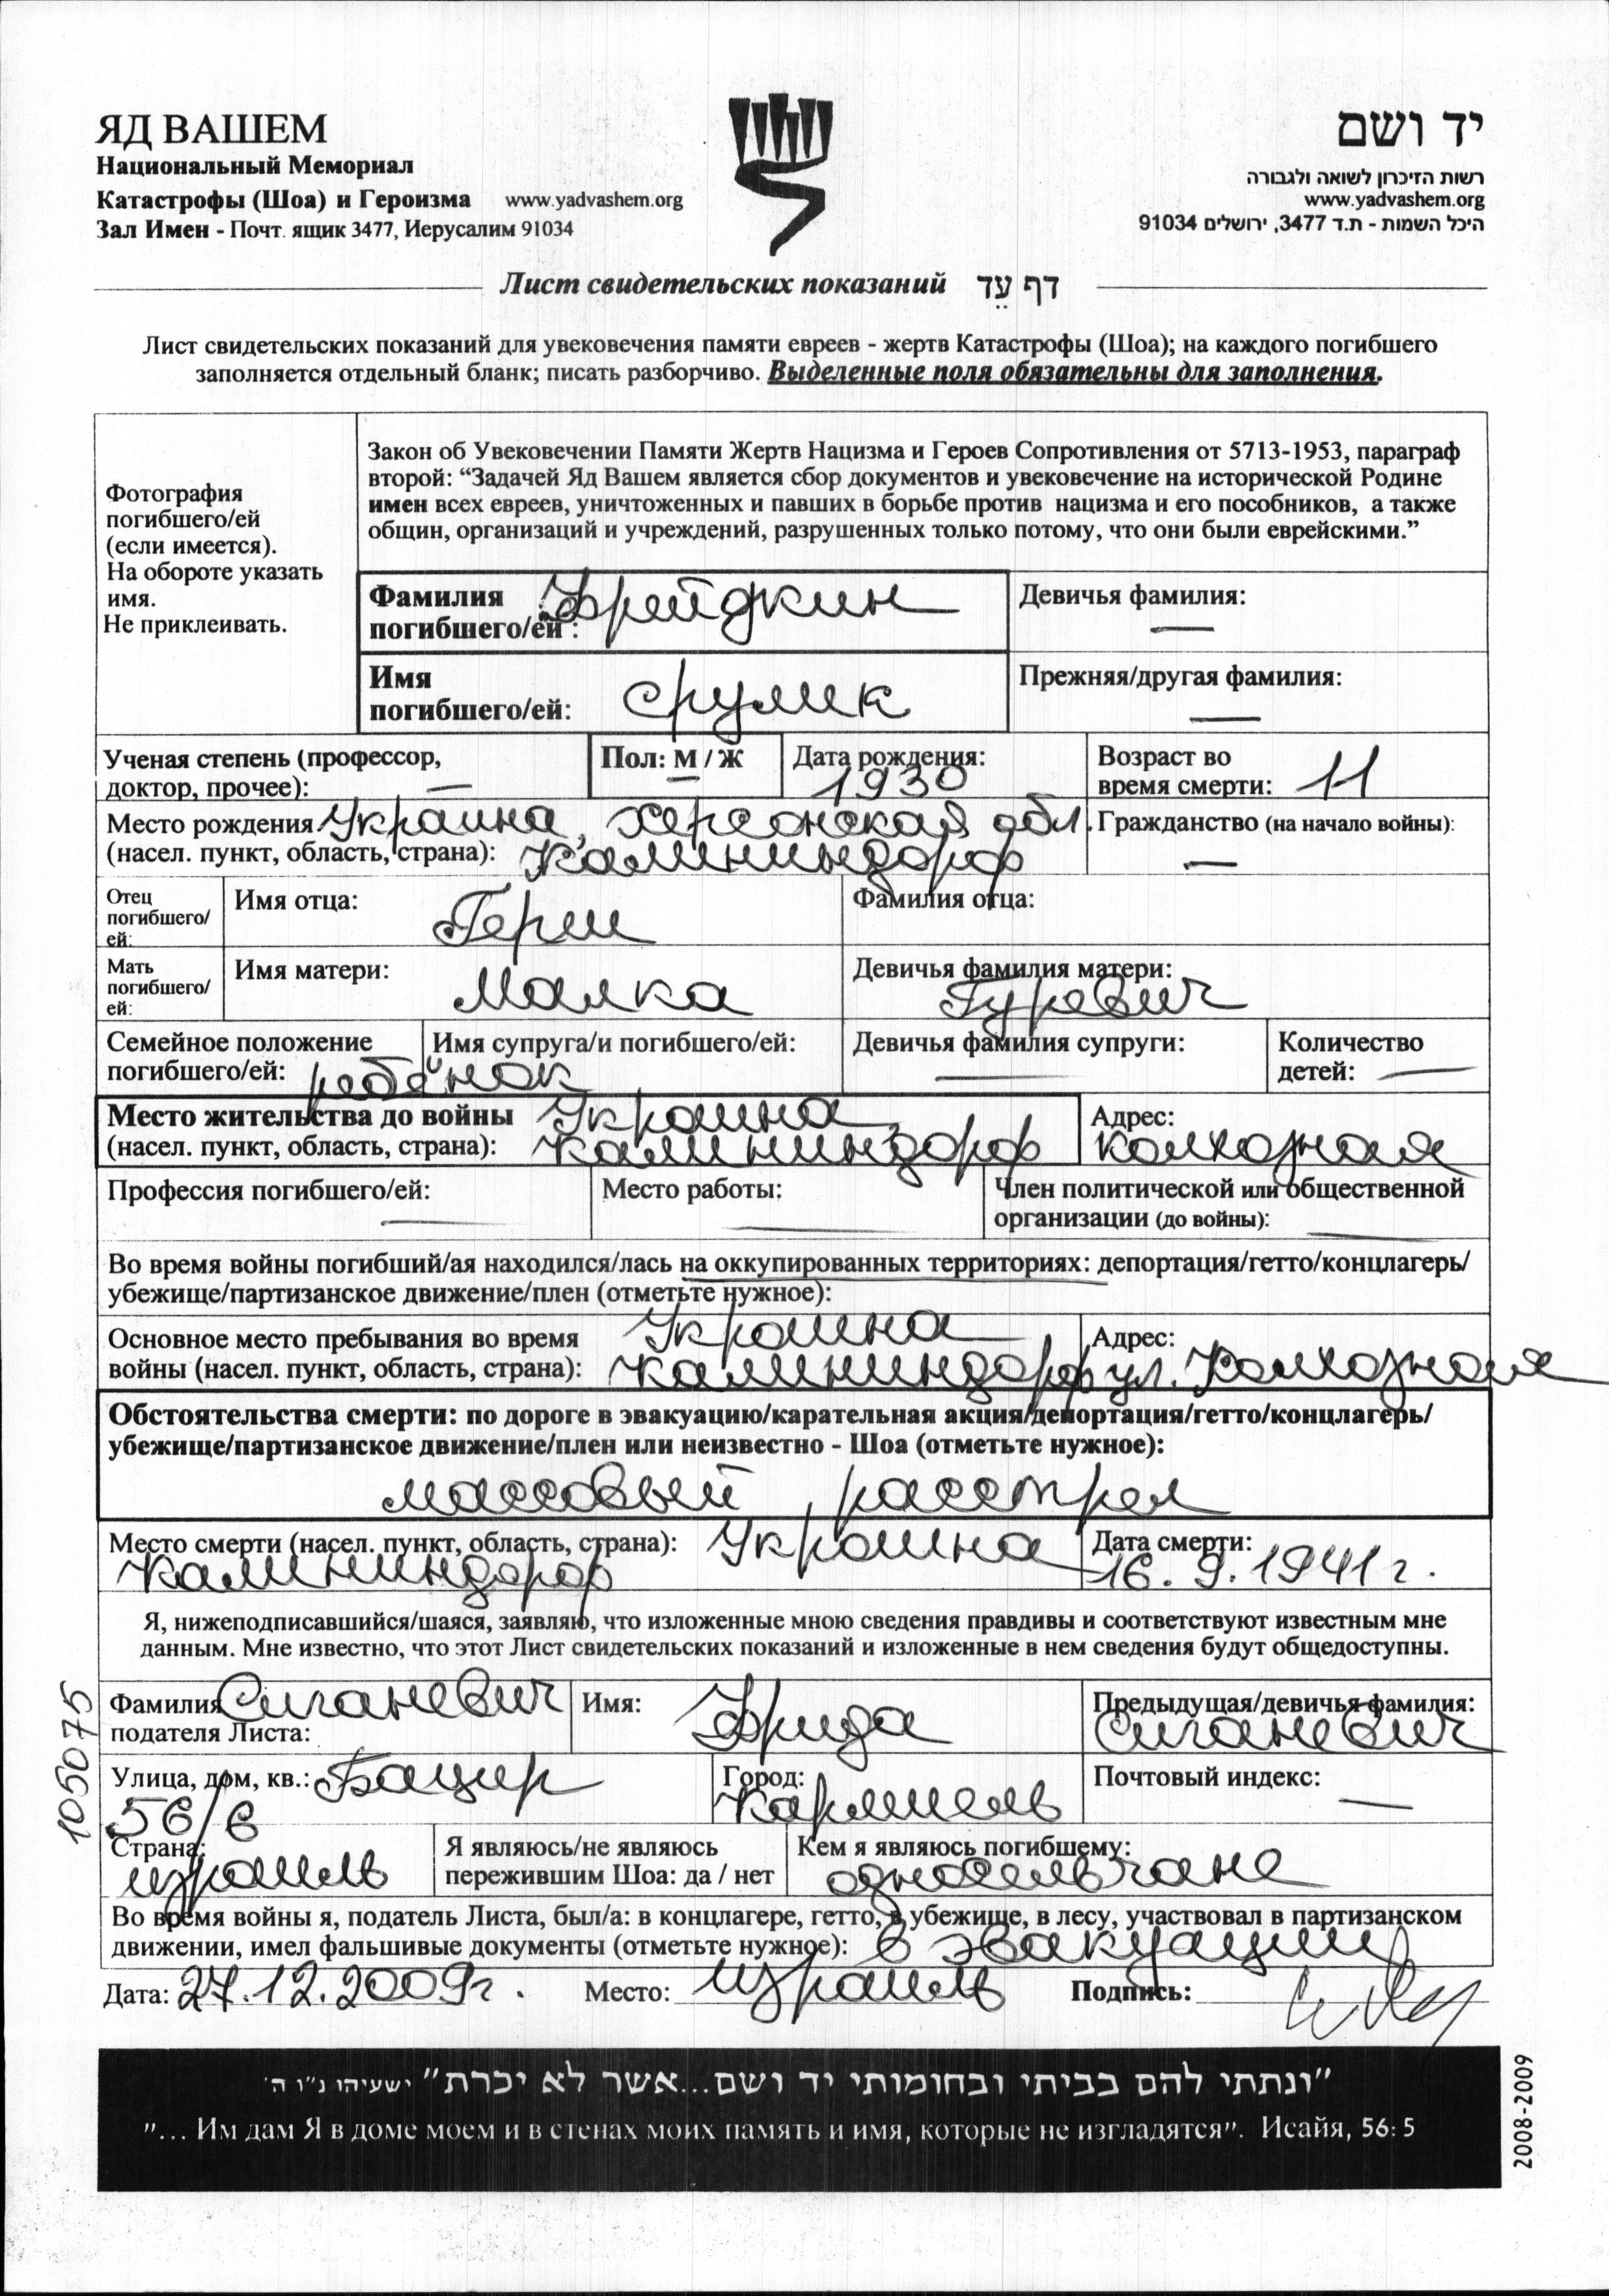 ЯД ВАШЕМ
Национальный Мемориал
Катастрофы (Шоа) и Героизма www.yadvashem.org
Зал Имен - Почт. ящик 3477, Иерусалим 91034
יד ושם
רשות הזיכרון לשואה ולגבורה
www.yadvashem.org
היכל השמות - ת.ד 3477, ירושלים 91034
Лист свидетельских показаний דף עֵד
Лист свидетельских показаний для увековечения памяти евреев - жертв Катастрофы (Шоа); на каждого погибшего
заполняется отдельный бланк; писать разборчиво. Выделенные поля обязательны для заполнения.
Фотография
погибшего/ей
(если имеется).
На обороте указать
имя.
Не приклеивать.
Закон об Увековечении Памяти Жертв Нацизма и Героев Сопротивления от 5713-1953, параграф
второй: “Задачей Яд Вашем является сбор документов и увековечение на исторической Родине
имен всех евреев, уничтоженных и павших в борьбе против нацизма и его пособников, а также
общин, организаций и учреждений, разрушенных только потому, что они были еврейскими.”
Фамилия
погибшего/ей : Фрейдкин
Девичья фамилия:
—
Имя
погибшего/ей: Срулик
Прежняя/другая фамилия:
—
Ученая степень (профессор,
доктор, прочее): —
Пол: М / Ж
Дата рождения:
1930
Возраст во
время смерти: 11
Место рождения Украина, Херсонская обл.
(насел. пункт, область, страна): Калининдорф
Гражданство (на начало войны):
—
Отец
погибшего/
ей:
Имя отца: Герш
Фамилия отца:
Мать
погибшего/
ей:
Имя матери: Малка
Девичья фамилия матери:
Гуревич
Семейное положение
погибшего/ей: ребёнок
Имя супруга/и погибшего/ей:
Девичья фамилия супруги:
—
Количество
детей: —
Место жительства до войны Украина,
(насел. пункт, область, страна): Калининдорф
Адрес:
Колхозная
Профессия погибшего/ей:
—
Место работы:
—
Член политической или общественной
организации (до войны): —
Во время войны погибший/ая находился/лась на оккупированных территориях: депортация/гетто/концлагерь/
убежище/партизанское движение/плен (отметьте нужное):
Основное место пребывания во время Украина
войны (насел. пункт, область, страна): Калининдорф
Адрес:
ул. Колхозная
Обстоятельства смерти: по дороге в эвакуацию/карательная акция/депортация/гетто/концлагерь/
убежище/партизанское движение/плен или неизвестно - Шоа (отметьте нужное):
массовый расстрел
Место смерти (насел. пункт, область, страна): Украина
Калининдорф
Дата смерти:
16. 9. 1941 г.
Я, нижеподписавшийся/шаяся, заявляю, что изложенные мною сведения правдивы и соответствуют известным мне
данным. Мне известно, что этот Лист свидетельских показаний и изложенные в нем сведения будут общедоступны.
105075
Фамилия Сиганевич
подателя Листа:
Имя: Фрида
Предыдущая/девичья фамилия:
Сиганевич
Улица, дом, кв.: Бацир
56/6
Город:
Кармиель
Почтовый индекс:
—
Страна:
Израиль
Я являюсь/не являюсь
пережившим Шоа: да / нет
Кем я являюсь погибшему:
односельчане
Во время войны я, податель Листа, был/а: в концлагере, гетто, в убежище, в лесу, участвовал в партизанском
движении, имел фальшивые документы (отметьте нужное): в эвакуации
Дата: 27.12.2009г. Место: Израиль Подпись:
"ונתתי להם בביתי ובחומותי יד ושם...אשר לא יכרת" ישעיהו נ"ו ה'
"... Им дам Я в доме моем и в стенах моих память и имя, которые не изгладятся". Исайя, 56: 5
2008-2009